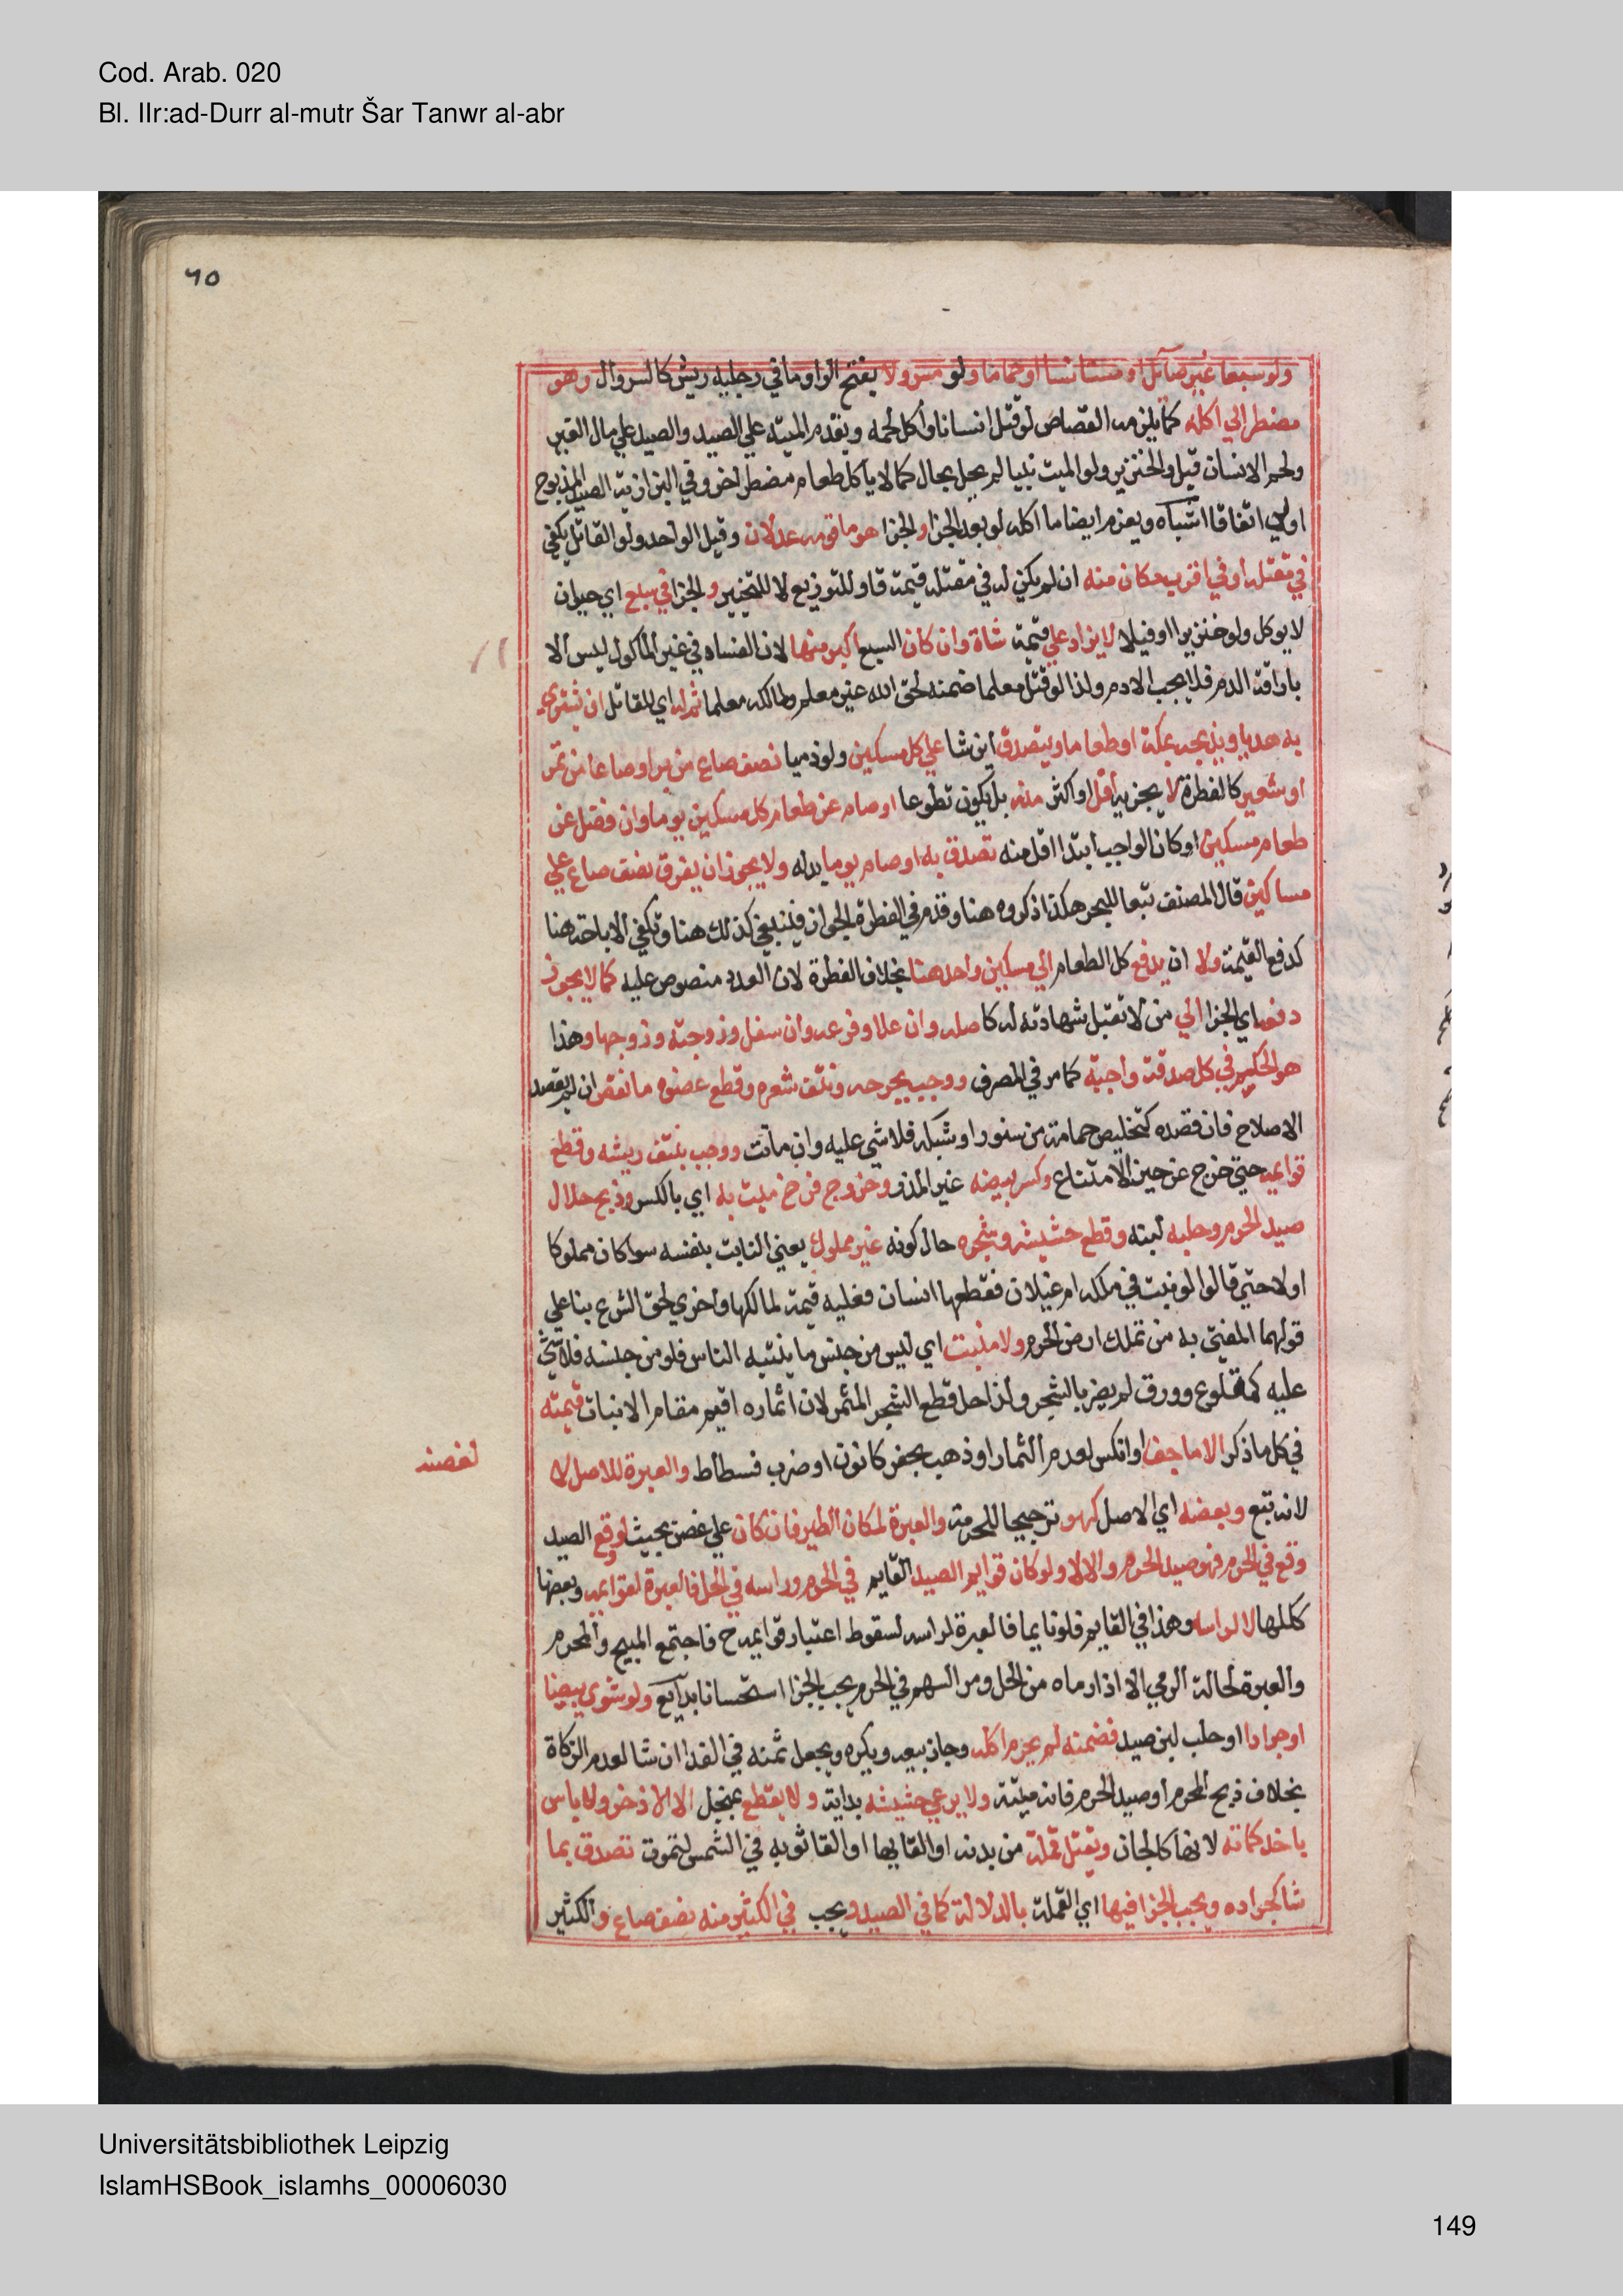 Cod. Arab. 020
Bl. IIr:ad-Durr al-mutr Šar Tanwr al-abr
٦٥
ولو سبعا غير صائل او مستانسا او حماما ولو مسرولا بفتح الواو ما في رجليه ريش كالسروال وهو
مضطر الي اكله كما يلزمه القصاص لو قتل انسانا واكل لحمه ويقدم الميتة علي الصيد والصيد علي مال الغير
ولحم الانسان قيل والخنزير ولو الميت نبيا لم يحل بحال كما لا ياكل طعام مضطر اخر وفي البزازية الصيد المذبوح
اولي اتفاقا اشباه ويغرم ايضا ما اكله لو بعد الجزا والجزا هو ما قومه عدلان وقيل الواحد ولو القاتل يكفي
في مقتله او في اقرب مكان منه ان لم يكن له في مقتله قيمة فاو للتوزيع لا للتخيير والجزا في سبع اي حيوان
لا يوكل ولو خنزيرا او فيلا لا يزاد علي قيمة شاة وان كان السبع اكبر منها لان الفساد في غير الماكول ليس الا
باراقة الدم فلا يجب الا دم ولذا لو قتل معلما ضمنه لحق الله غير معلم ولمالكه معلما ثم له اي للقاتل ان يشتري
به هديا ويذبحه بمكة او طعاما ويتصدق اين شا علي كل مسكين ولو ذميا نصف صاع من بر او صاعا من تمر
او شعير كالفطرة لا يجزيه اقل او اكثر منه بل يكون تطوعا او صام عن طعام كل مسكين يوما وان فضل عن
طعام مسكين او كان الواجب ابتدا اقل منه تصدق به او صام يوما بدله ولا يجوز ان يفرق نصف صاع علي
مساكين قال المصنف تبعا للبحر هكذا ذكروه هنا وقدم في الفطرة الجواز فينبغي كذلك هنا وتكفي الاباحة هنا
كدفع القيمة ولا ان يدفع كل الطعام الي مسكين واحد هنا بخلاف الفطرة لان العدد منصوص عليه كما لا يجوز
دفعه اي الجزا الي من لا تقبل شهادته له كاصله وان علا وفرعه وان سفل وزوجته وزوجها وهذا
هو الحكم في كل صدقة واجبة كما مر في المصرف ووجب بجرحه ونتف شعره وقطع عضوه ما نقص ان لم يقصد
الاصلاح فان قصده كتخليص حمامة من سنور او شبكة فلا شي عليه وان ماتت ووجب بنتف ريشه وقطع
قوايمه حتي خرج عن حيز الامتناع وكسر بيضه غير المذر وخروج فرخ ميت به اي بالكسر وذبح حلال
صيد الحرم وحلبه لبنه وقطع حشيشه وشجره حال كونه غير مملوك يعني النابت بنفسه سوا كان مملوكا
او لا حتي قالوا لو نبت في ملكه ام غيلان فقطعها انسان فعليه قيمة لمالكها واخري لحق الشرع بنا علي
قولهما المفتي به من تملك ارض الحرم ولا منبت اي ليس من جنس ما ينبته الناس فلو من جنسه فلا شي
عليه كمقلوع وورق لم يضر بالشجر ولذا حل قطع الشجر المثمر لان اثماره اقيم مقام الانبات قيمته
في كل ما ذكر الا ما جف او انكسر لعدم النماء او ذهب بحفر كانون او ضرب فسطاط والعبرة للاصل لا
لغصنه
لانه تبع وبعضه اي الاصل كهو ترجيحا للحرمة والعبرة لمكان الطير فان كان علي غصن بحيث لو وقع الصيد
وقع في الحرم فهو صيد الحرم والا لا ولو كان قوايم الصيد القايم في الحرم وراسه في الحل فالعبرة لقوايمه وبعضها
ككلها لا لراسه وهذا في القايم فلو نايما فالعبرة لراسه لسقوط اعتبار قوايمه ح فاجتمع المبيح والمحرم
والعبرة لحالة الرمي الا اذا رماه من الحل ومر السهم في الحرم يجب الجزا استحسانا بدايع ولو شوي بيضا
او جرادا او حلب لبن صيد فضمنه لم يحرم اكله وجاز بيعه ويكره ويجعل ثمنه في الفدا ان شا لعدم الزكاة
بخلاف ذبح المحرم او صيد الحرم فانه ميتة ولا يرعي حشيشه بدابة ولا يقطع بمنجل الا الاذخر ولا باس
باخذ كماته لانها كالجاف وبقتل قملة من بدنه او القايها او القا ثوبه في الشمس لتموت تصدق بما
شا كجراده ويجب الجزا فيها اي القملة بالدلالة كما في الصيد ويجب في الكثير منه نصف صاع والكثير
Universitätsbibliothek Leipzig
IslamHSBook_islamhs_00006030
149